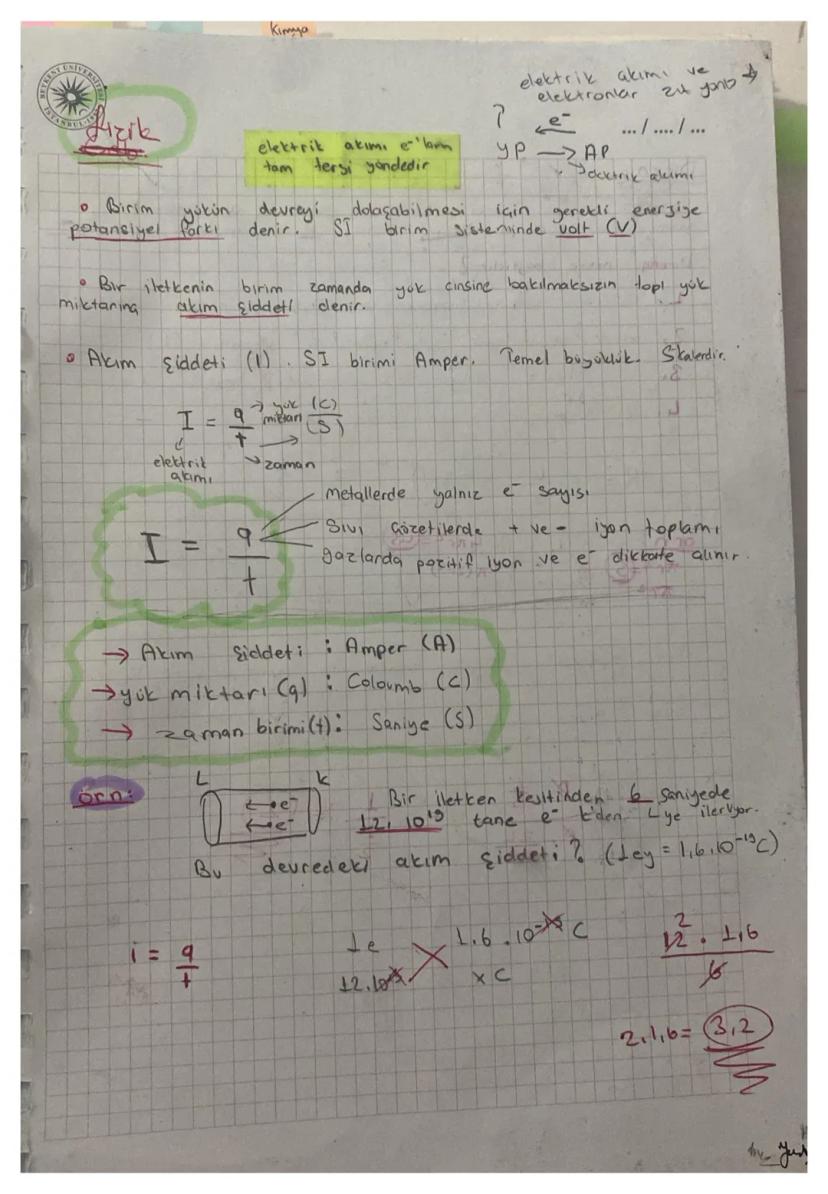 Kimya
BEYKENT ÜNİVERSİTESİ
İSTANBUL
fizik
elektrik akımı ve
elektronlar zıt yönlü →
?
e⁻
... / .... / ...
YP → AP
elektrik akımı
elektrik akımı e⁻ların
tam tersi yöndedir
• Birim yükün devreyi dolaşabilmesi için gerekli enerjiye
potansiyel farkı denir. SI birim sisteminde volt (V)
• Bir iletkenin birim zamanda yük cinsine bakılmaksızın topl yük
miktarına akım şiddeti denir.
• Akım şiddeti (I). SI birimi Amper. Temel büyüklük. Skalerdir.
I = q/t → yük miktarı (C)/(S)
elektrik akımı
→ zaman
I = q/t
metallerde yalnız e⁻ sayısı
Sıvı çözetilerde + ve - iyon toplamı
gazlarda pozitif iyon ve e⁻ dikkate alınır.
→ Akım şiddeti : Amper (A)
→ yük miktarı (q) : Coloumb (C)
→ zaman birimi (t): Saniye (S)
örn:
L K
←•e⁻
←•e⁻
Bir iletken kesitinden 6 saniyede
12. 10¹⁹ tane e⁻ K'den L ye ilerliyor.
Bu devredeki akım şiddeti? (1ey = 1,6.10⁻¹⁹C)
i = q/t
1e 1.6 .10⁻¹⁹ C
12.10¹⁹ x C
2
12 . 1,6
6
2.1,6= 3,2